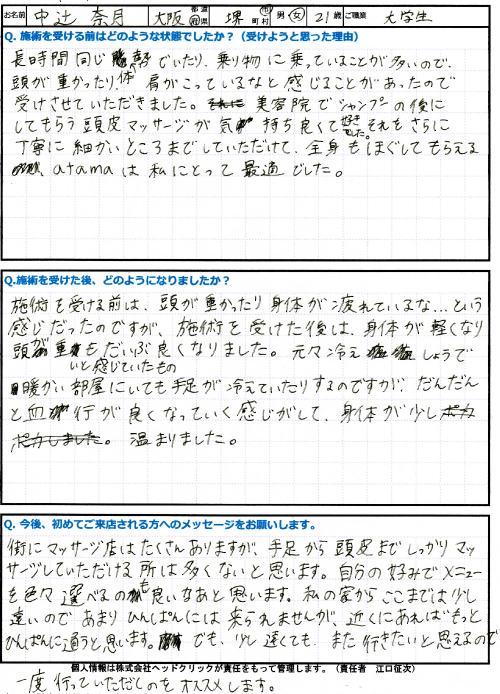 お名前 中辻 奈月 大阪 都道府県 堺 市町村 男 女 21歳 ご職業 大学生
Q. 施術を受ける前はどのような状態でしたか？（受けようと思った理由）
長時間同じ でいたり、乗り物に乗っていることが多いので、
頭が重かったり、体 肩がこっているなと感じることがあったので
受けさせていただきました。 美容院でシャンプーの後に
してもらう頭皮マッサージが気持ち良くて好きでした。それをさらに
丁寧に細かいところまでしていただけて、全身もほぐしてもらえる
atamaは私にとって最適でした。
Q.施術を受けた後、どのようになりましたか？
施術を受ける前は、頭が重かったり身体が疲れているな…という
感じだったのですが、施術を受けた後は、身体が軽くなり
頭が重いと感じていたものもだいぶ良くなりました。元々冷え しょうで
暖かい部屋にいても手足が冷えていたりするのですが、だんだん
と血行が良くなっていく感じがして、身体が少しポカ
ポカしました。温まりました。
Q. 今後、初めてご来店される方へのメッセージをお願いします。
街にマッサージ店はたくさんありますが、手足から頭皮までしっかりマッ
サージしていただける所は多くないと思います。自分の好みでメニュー
を色々選べるのも良いなあと思います。私の家からここまでは少し
遠いのであまりひんぱんには来られませんが、近くにあればもっと
ひんぱんに通うと思います。でも、少し遠くても、また行きたいと思えるので
個人情報は株式会社ヘッドクリックが責任をもって管理します。（責任者 江口征次）
一度行っていただくのをオススメします。